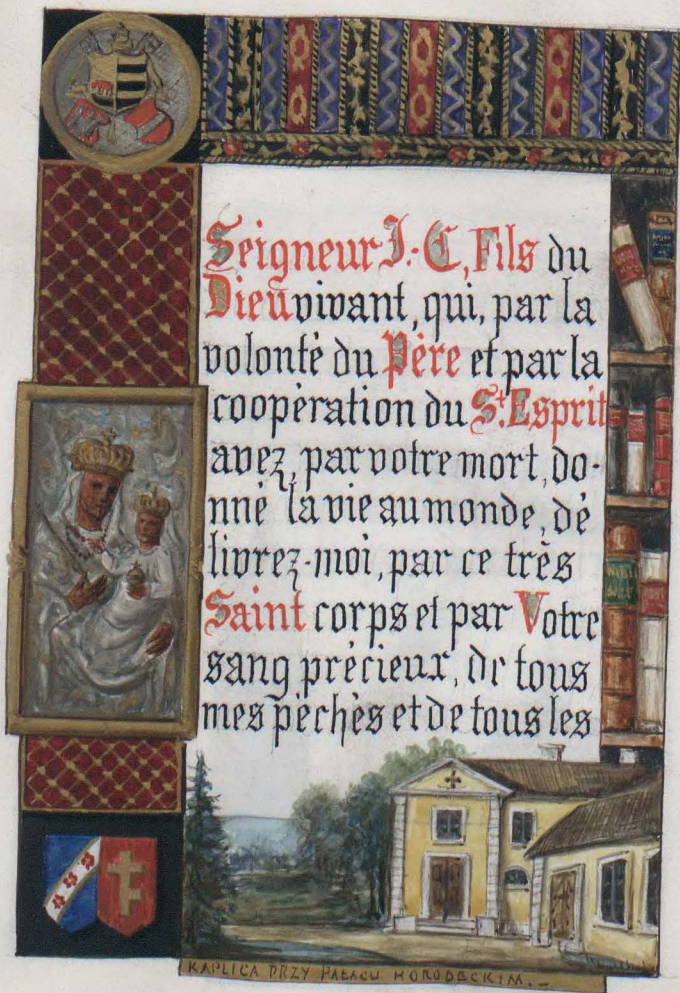 Seigneur J.-C, Fils du
Dieu vivant, qui, par la
volonté du Père et par la
coopèration du St. Esprit
avez, par votre mort, do-
nné la vie au monde, dé
livrez-moi, par ce très
Saint corps et par Votre
sang précieux, de tous
mes pèchès et de tous les
KAPLICA PRZY PAŁACU HORODECKIM.-